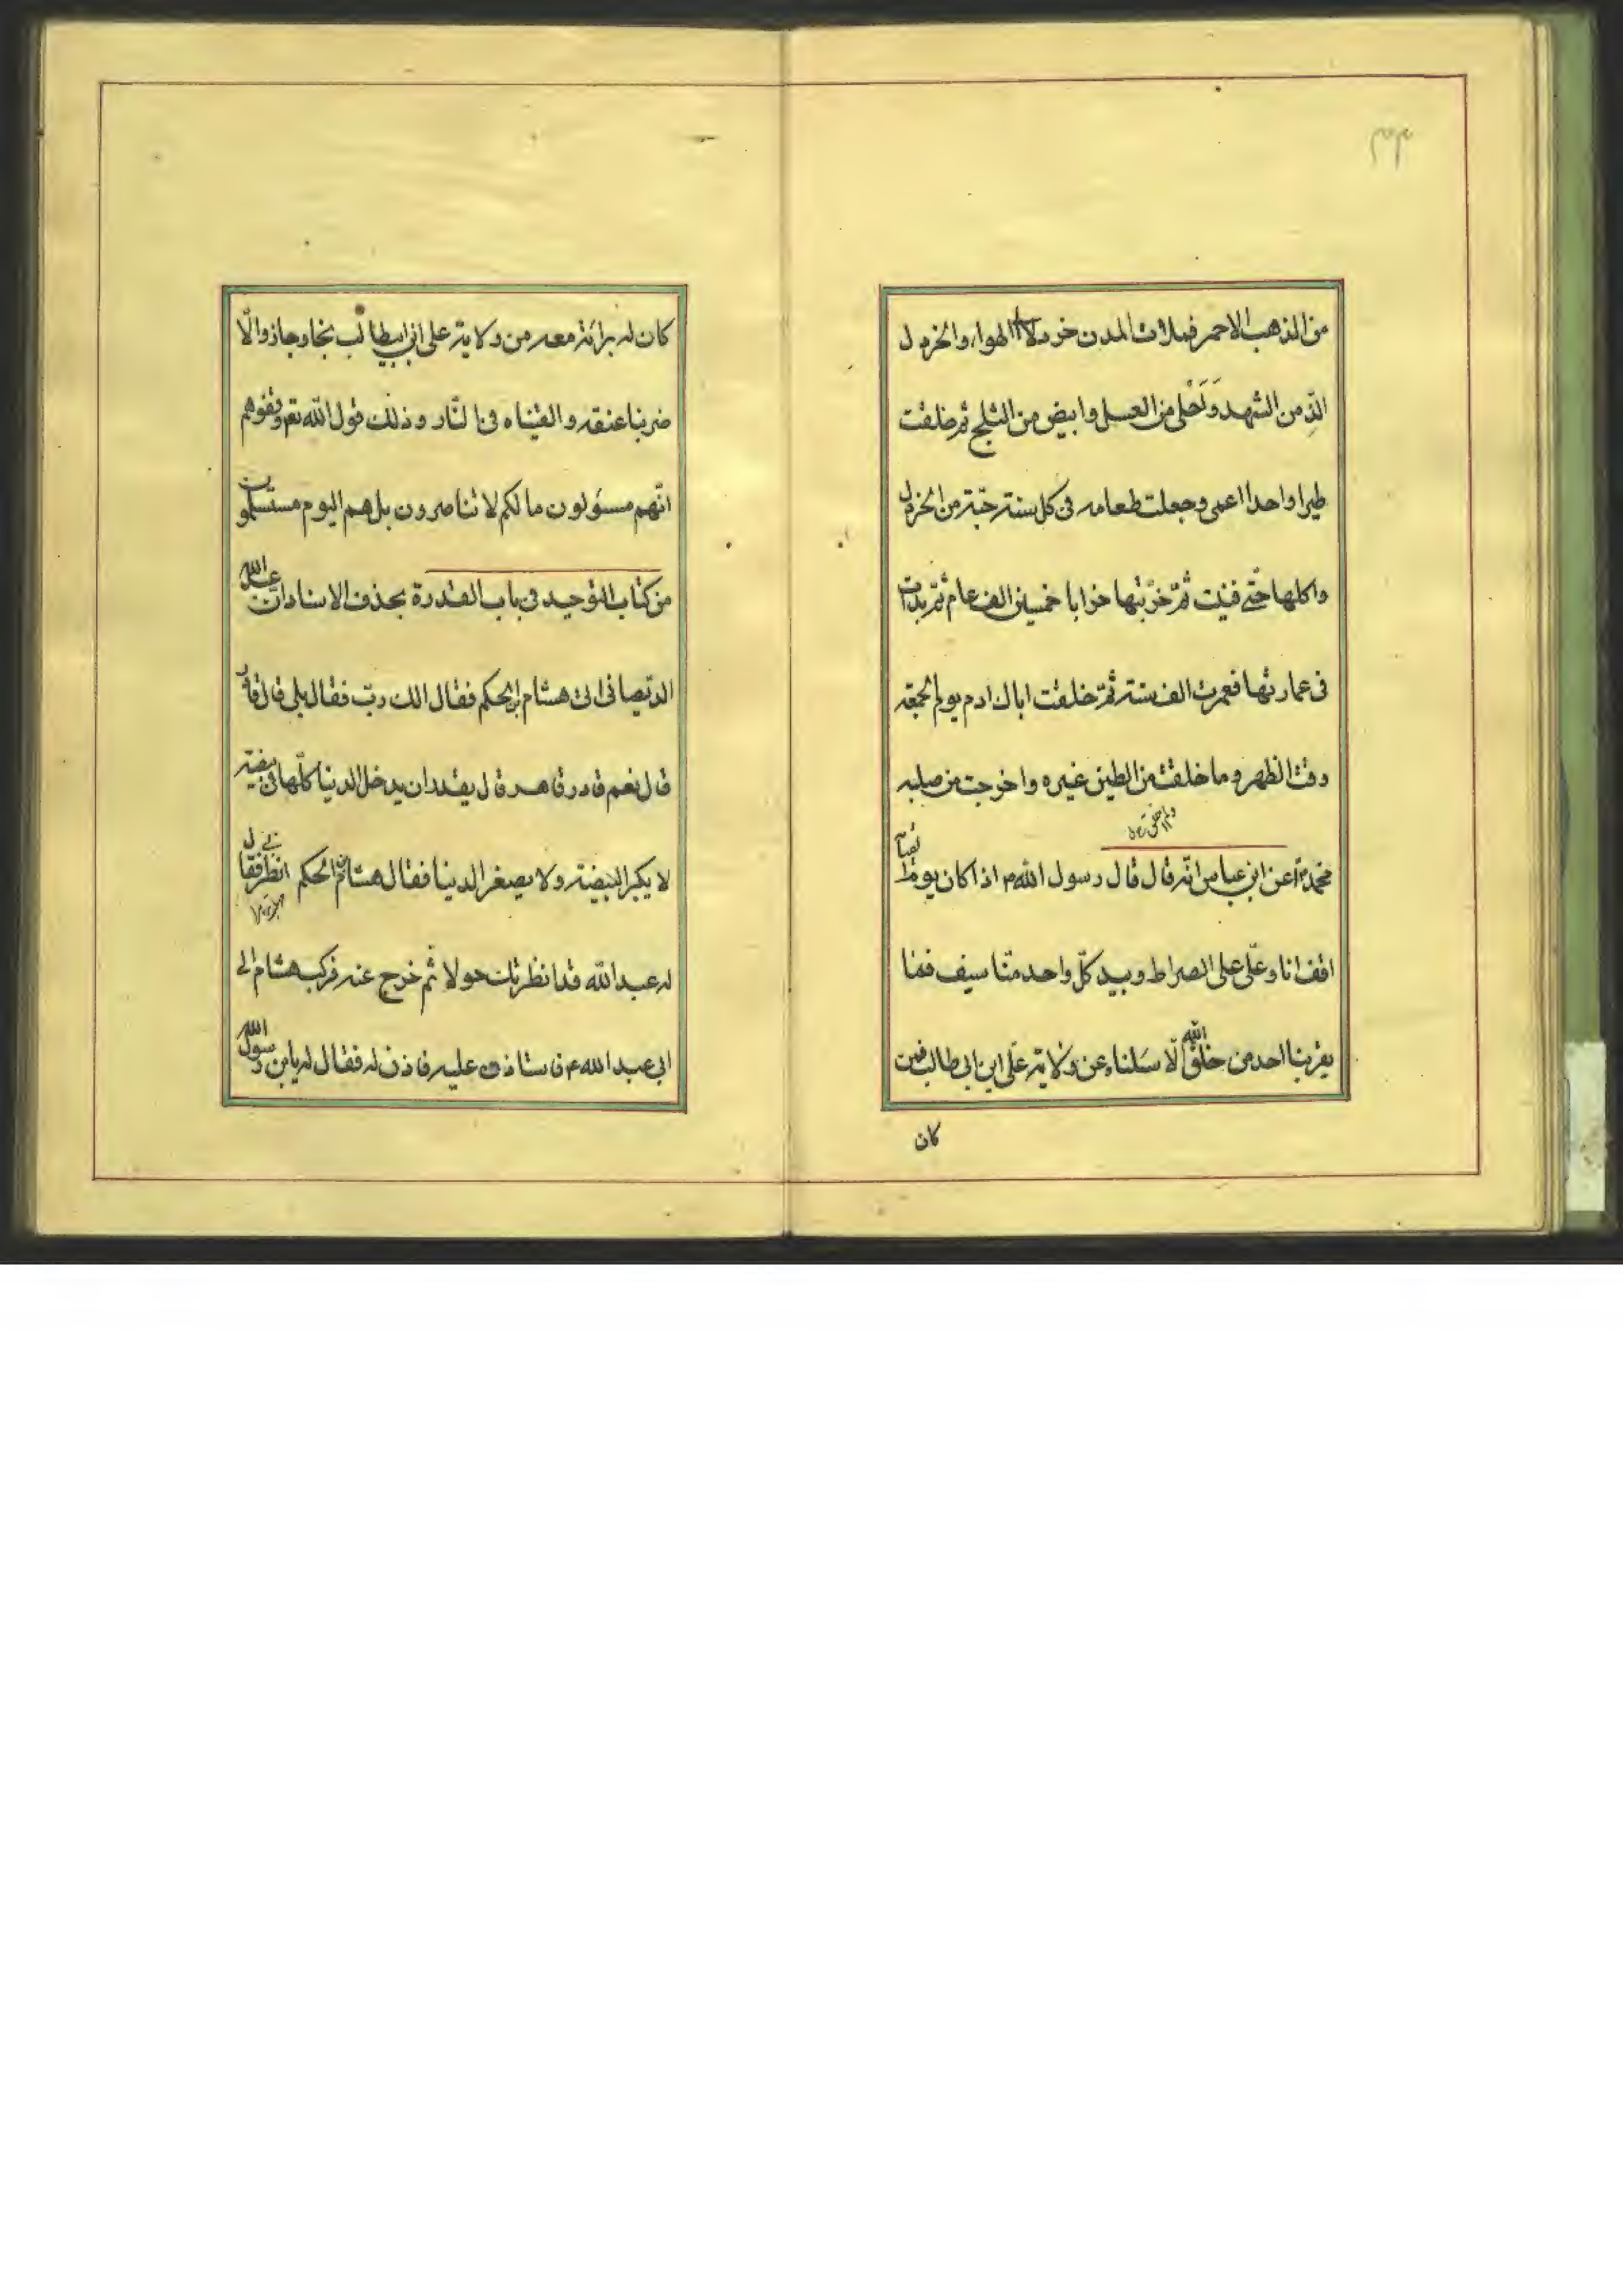 من الذهب الاحمر فملات المدن خردلا الهواء والخردل
الذ من الشهد وَاَحْلى من العسل وابيض من الثلج ثم خلقت
طيرا واحدا اعمى وجعلت طعامه فى كل سنة حبّة من الخردل
واكلها حتّى فنيت ثمّ خرّبتها خرابا خمسين الف عام ثمّ بدات
فى عمارتها فعمرت الف سنة ثمّ خلقت اباك ادم يوم الجمعة
وقت الظهر وما خلقت من الطين غيره واخرجت من صلبه
محمدا عن ابن عباس انّه قال قال رسول الله ص اذا كان يوم القيامة
اقف انا وعلّى على الصراط وبيد كلّ واحد منّا سيف فما
يمر بنا احد من خلق الله الّا سئلناه عن ولاية علّى ابن ابى طالب فمن
كان
كان له برائة معه من ولاية على ابن ابيطالب نجا وجاز والّا
ضربنا عنقه والقيناه فى النّار وذلك قول الله تع وقفوهم
انّهم مسؤلون ما لكم لا تناصرون بل هم اليوم مستسلمون
من كتاب التوحيد فى باب القدرة بحذف الاسناد انّ عبد الله
الديصانى اتى هشام بن الحكم فقال الك ربّ فقال بلى قال قادر
قال نعم قادر قاهر قال يقدر ان يدخل الدنيا كلّها فى بيضة
لا يكبر البيضة ولا يصغر الدنيا فقال هشام بن الحكم انظرنى فقال
له عبد الله قد انظرتك حولا ثم خرج عنه فركب هشام الى
ابى عبد الله ع فاستاذن عليه فاذن له فقال له يابن رسول الله